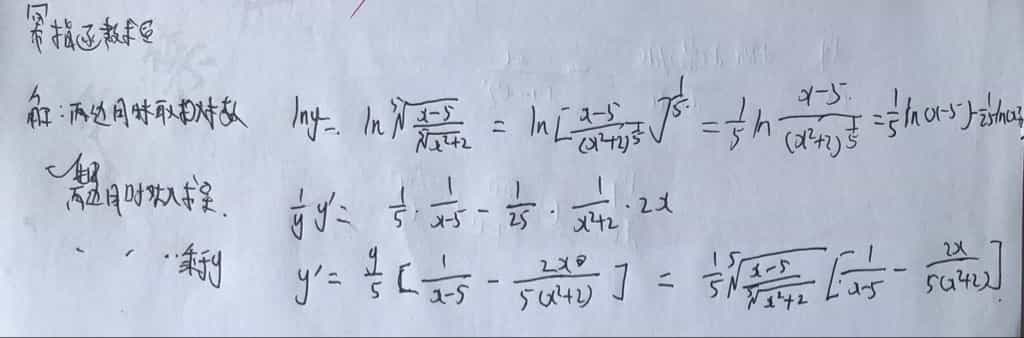 幂指函数求导
解:两边同时取对数 lny= ln⁵√((x-5)/⁵√(x²+2)) = ln[(x-5)/(x²+2)^(1/5)]^(1/5) = 1/5 ln (x-5)/(x²+2)^(1/5) = 1/5 ln(x-5)-1/25 ln(x²
两边同时对x求导. 1/y y′= 1/5 · 1/(x-5) - 1/25 · 1/(x²+2) · 2x
〃 〃 乘y y′= y/5 [1/(x-5) - 2x/(5(x²+2))] = 1/5 ⁵√((x-5)/⁵√(x²+2)) [1/(x-5) - 2x/(5(x²+2))]